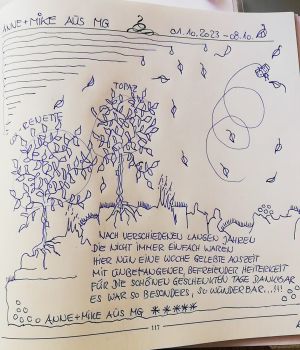 ANNE+MIKE AÜS MG
01.10.2023 - 08.10.
TOPAZ
RENETTE
NACH VERSCHIEDENEN LANGEN JAHREN
DIE NICHT IMMER EINFACH WAREN
HIER NÜN EINE WOCHE GELEBTE AUSZEIT
MIT UNBEFANGENER, BEFREIENDER HEITERKEIT
FÜR DIE SCHÖNEN GESCHENKTEN TAGE DANKBAR
ES WAR SO BESONDERS, SO WÜNDERBAR...!!!
ANNE+MIKE AÜS MG *****
117